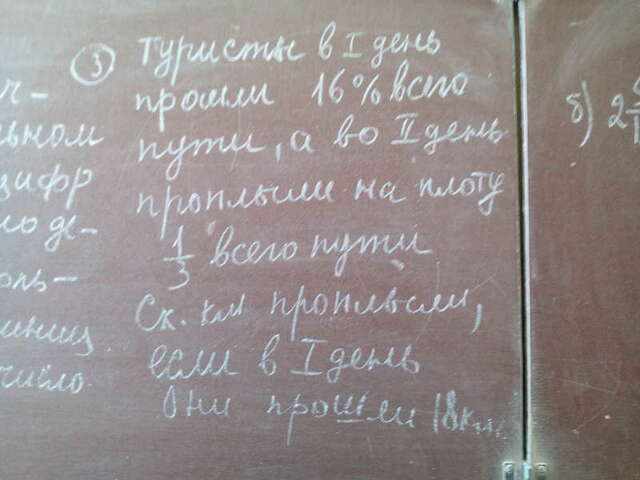 ③ Туристы в I день
прошли 16% всего
пути, а во II день
проплыли на плоту
1/3 всего пути
Ск. км проплыли,
если в I день
они прошли 18км.
ч-
ьном
цифр
но де-
оль-
иниц
число.
б) 2